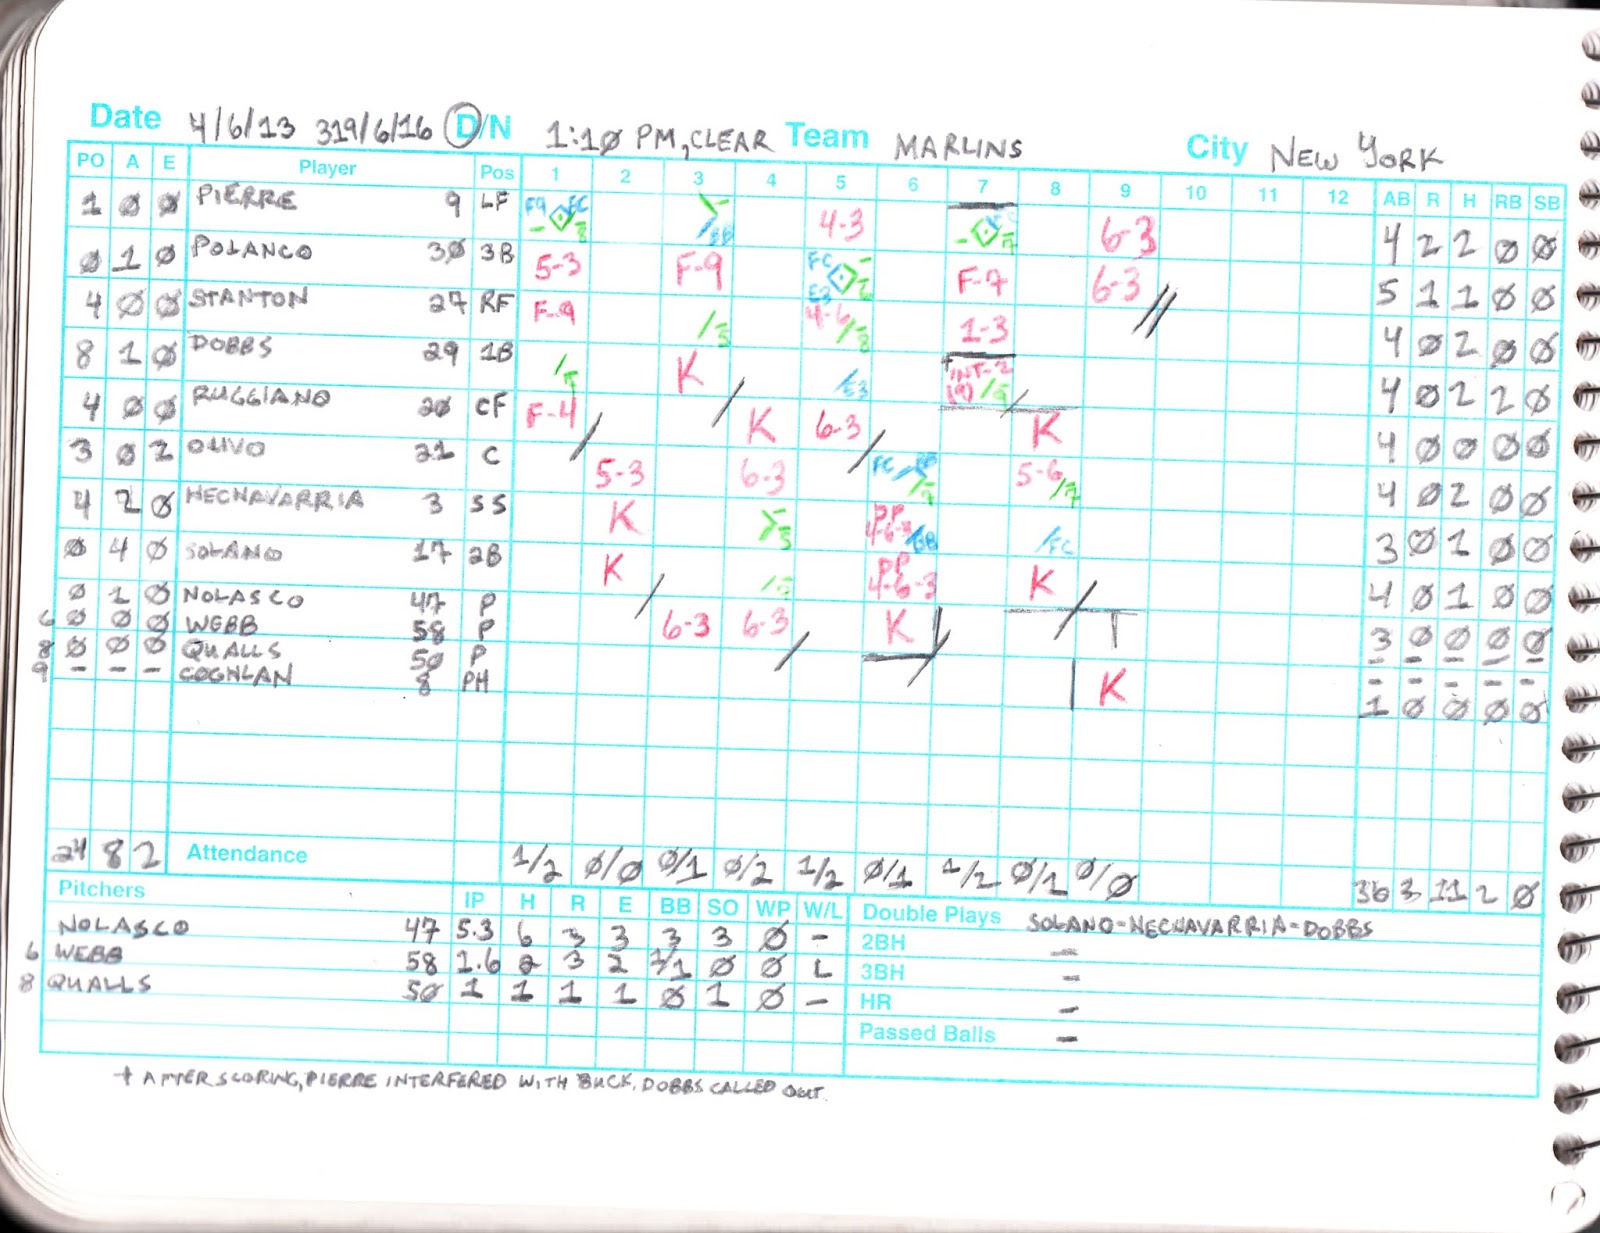 Date 4/6/13 319/6/16 D/N 1:1Ø PM, CLEAR Team MARLINS City NEW YORK
PO A E Player Pos 1 2 3 4 5 6 7 8 9 10 11 12 AB R H RB SB
1 Ø Ø PIERRE 9 LF F9 FC 8 BB 4-3 7 6-3 4 2 2 Ø Ø
Ø 1 Ø POLANCO 3Ø 3B 5-3 F-9 FC E3 F-7 6-3 5 1 1 Ø Ø
4 Ø Ø STANTON 27 RF F-9 4-6 8 1-3 4 Ø 2 Ø Ø
8 1 Ø DOBBS 29 1B K E3 INT-2 (9) 4 Ø 2 2 Ø
4 Ø Ø RUGGIANO 2Ø CF F-4 K 6-3 K 4 Ø Ø Ø Ø
3 Ø 2 OLIVO 21 C 5-3 6-3 FC 5-6 7 4 Ø 2 Ø Ø
4 2 Ø HECHAVARRIA 3 SS K DP 4-6-3 BB FC 3 Ø 1 Ø Ø
Ø 4 Ø SOLANO 17 2B K DP 4-6-3 K 4 Ø 1 Ø Ø
Ø 1 Ø NOLASCO 47 P 6-3 6-3 K 3 Ø Ø Ø Ø
6 Ø Ø Ø WEBB 58 P - - - - -
8 Ø Ø Ø QUALLS 5Ø P - - - - -
9 - - - COGHLAN 8 PH K 1 Ø Ø Ø Ø
24 8 2 Attendance 1/2 Ø/Ø Ø/1 Ø/2 1/2 Ø/1 1/2 Ø/1 Ø/Ø 36 3 11 2 Ø
Pitchers IP H R E BB SO WP W/L Double Plays SOLANO-HECHAVARRIA-DOBBS
NOLASCO 47 5.3 6 3 3 3 3 Ø - 2BH -
6 WEBB 58 1.6 2 3 2 1/1 Ø Ø L 3BH -
8 QUALLS 5Ø 1 1 1 1 Ø 1 Ø - HR -
Passed Balls -
+ AFTER SCORING, PIERRE INTERFERED WITH BUCK. DOBBS CALLED OUT.